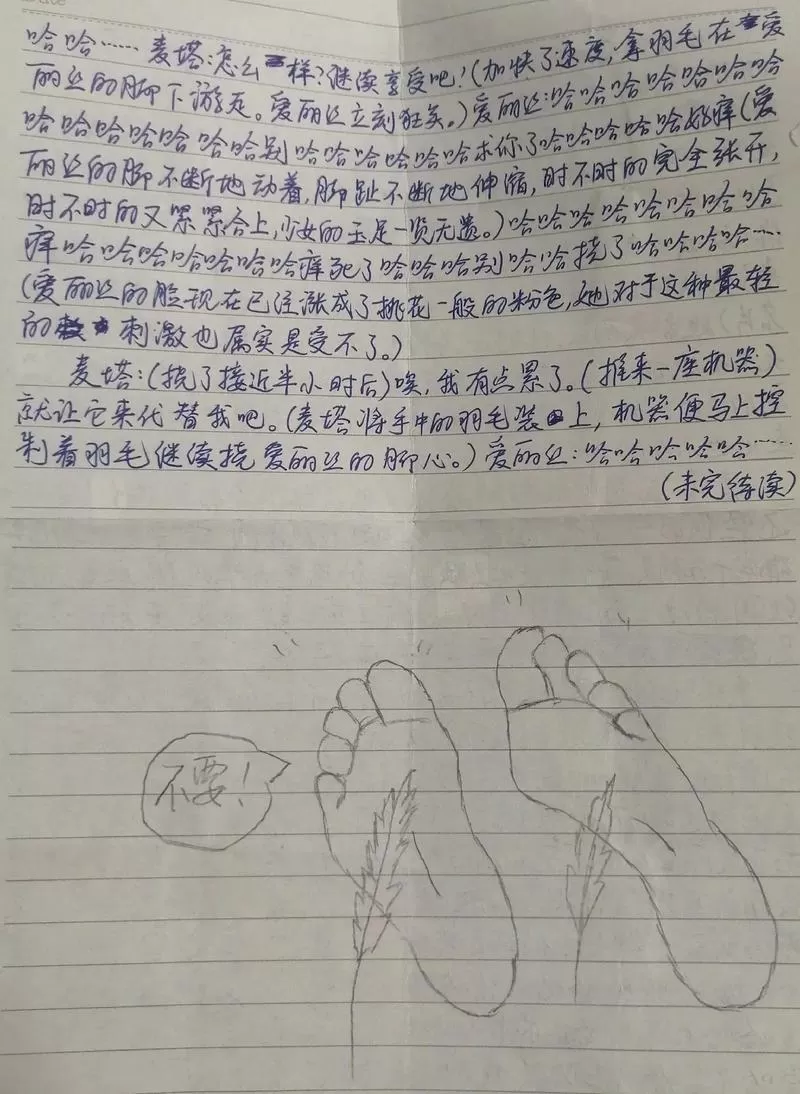 哈哈……麦塔:怎么样?继续享受吧!(加快了速度,拿羽毛在爱
丽丝的脚下游走。爱丽丝立刻狂笑。)爱丽丝:哈哈哈哈哈哈哈哈
哈哈哈哈哈哈哈哈别哈哈哈哈哈哈求你了哈哈哈哈哈好痒(爱
丽丝的脚不断地动着,脚趾不断地伸缩,时不时的完全张开,
时不时的又紧紧合上,少女的玉足一览无遗。)哈哈哈哈哈哈哈哈哈
痒哈哈哈哈哈哈哈痒死了哈哈哈别哈哈挠了哈哈哈哈……
(爱丽丝的脸现在已经涨成了桃花一般的粉色,她对于这种最轻
的刺激也属实是受不了。)
麦塔:(挠了接近半小时后)唉,我有点累了。(推来一座机器)
就让它来代替我吧。(麦塔将手中的羽毛装上,机器便马上控
制着羽毛继续挠爱丽丝的脚心。)爱丽丝:哈哈哈哈哈……
(未完待续)
不要!